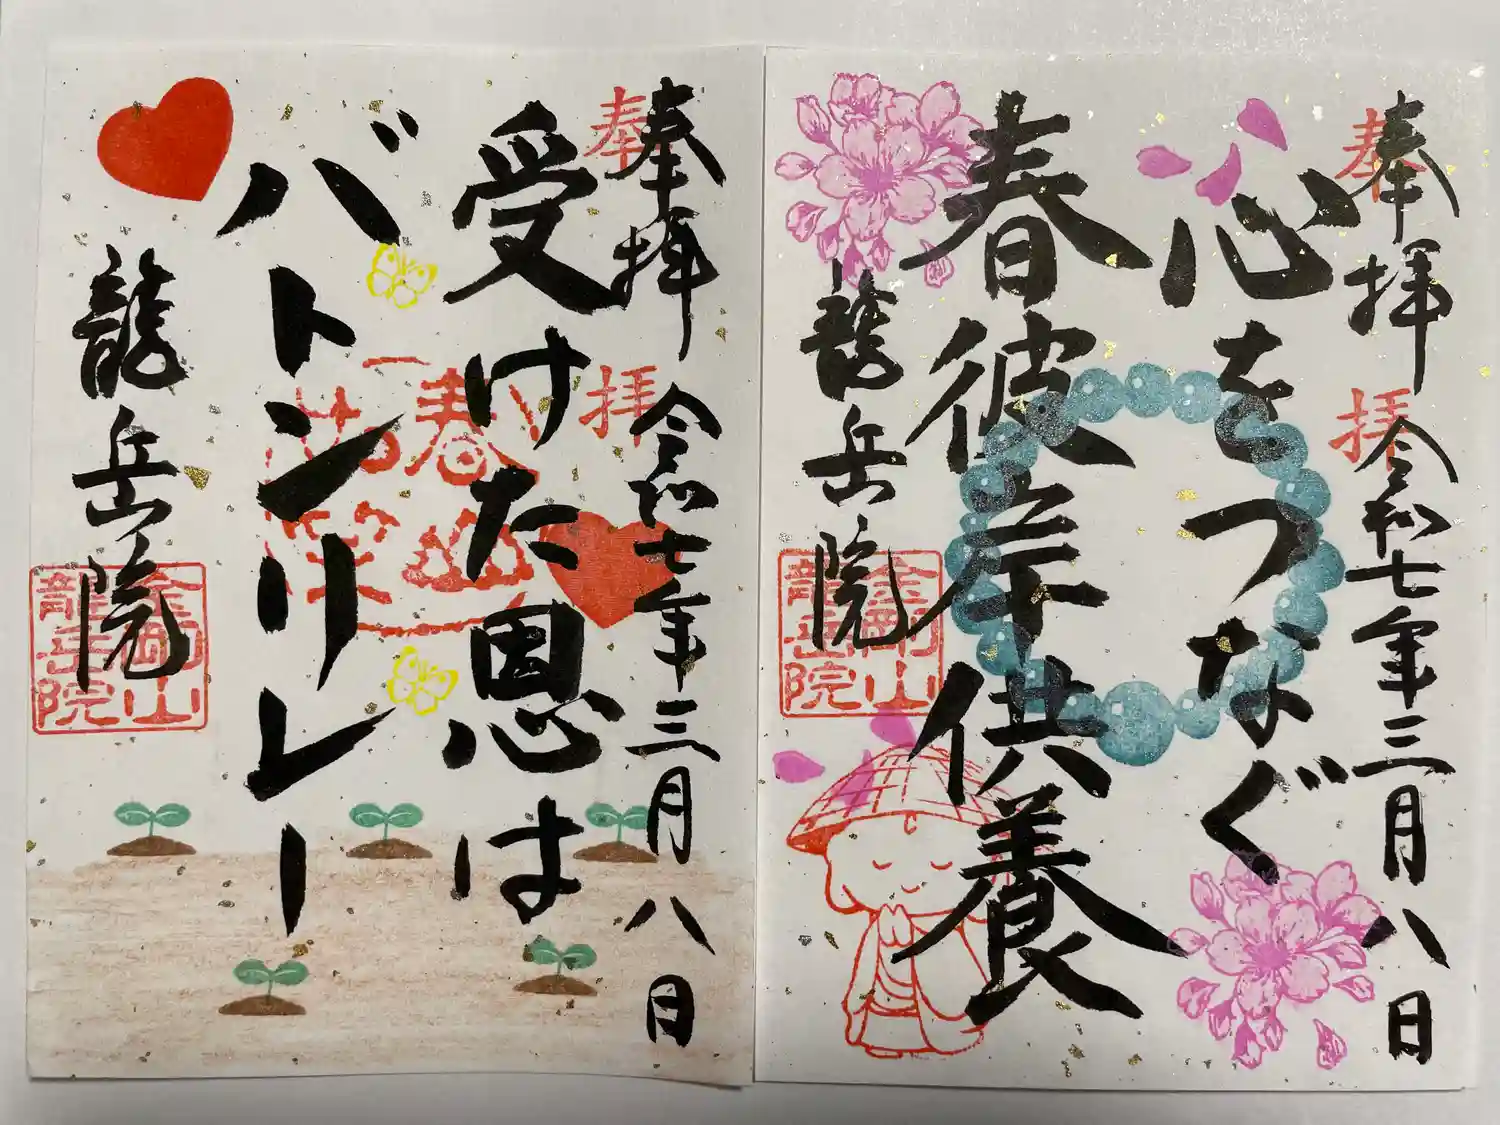 奉拝
奉拝 令和七年三月八日
心をつなぐ
春彼岸供養
龍岳院
金剛山
龍岳院
奉拝
奉拝 令和七年三月八日
受けた恩は
バトンリレー
龍岳院
金剛山
龍岳院
春